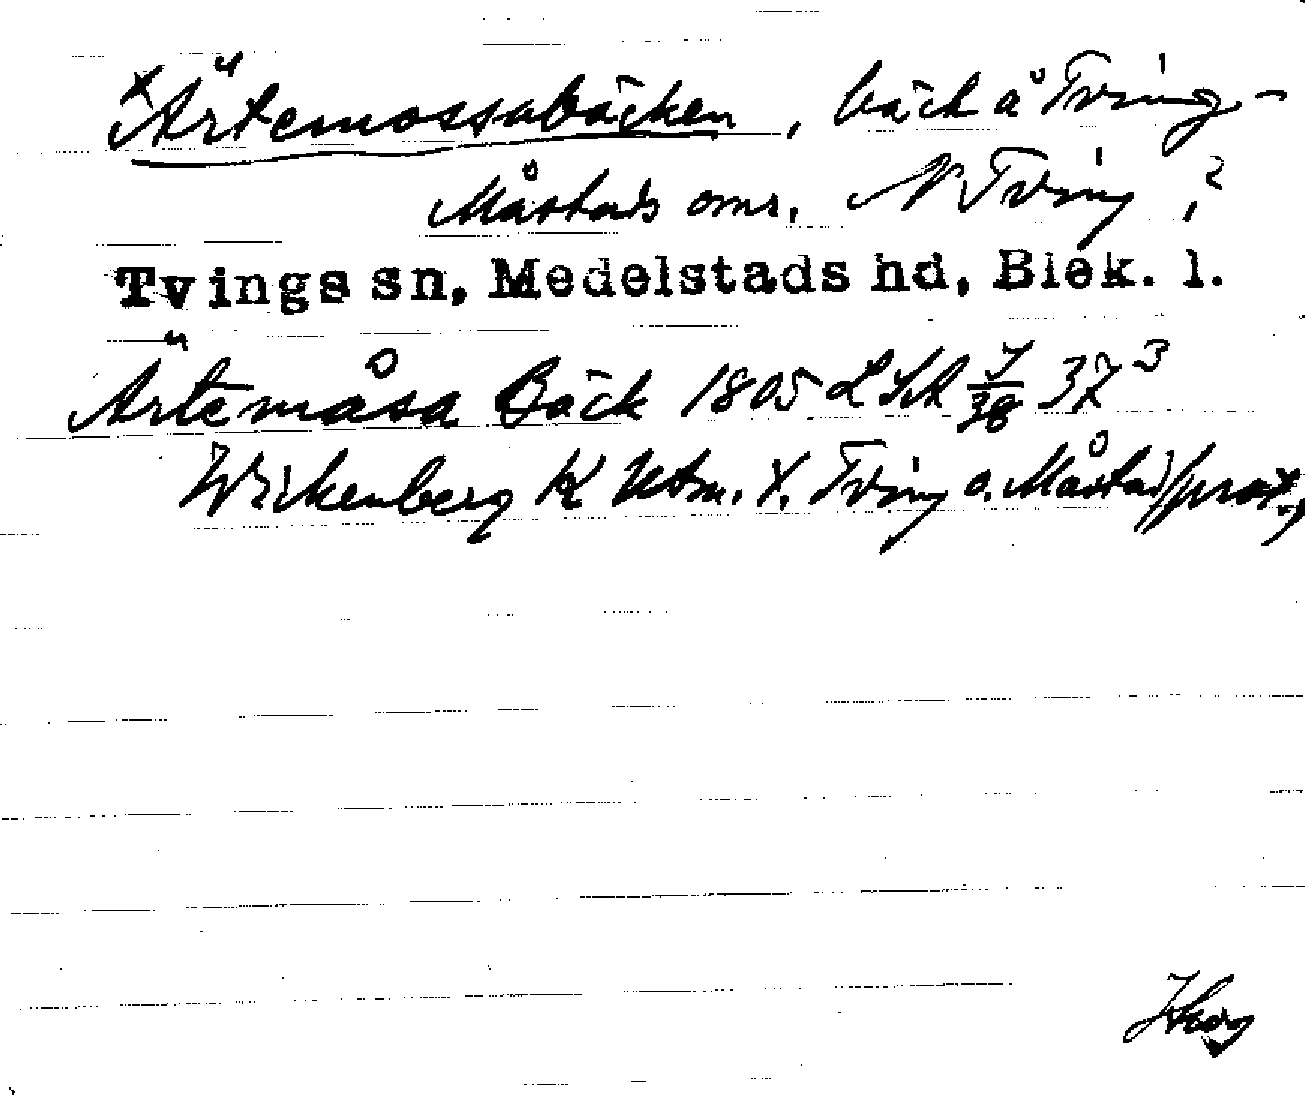 ×Ärtemossabäcken, bäck å Tving-
Måstads omr., N Tving,?
Tvings sn, Medelstads hd, Blek. l.
Ärtemåsa Bäck 1805 LSA 7/38 37³
Wirkenberg K Utm. X. Tving o. Måstad/prot.,